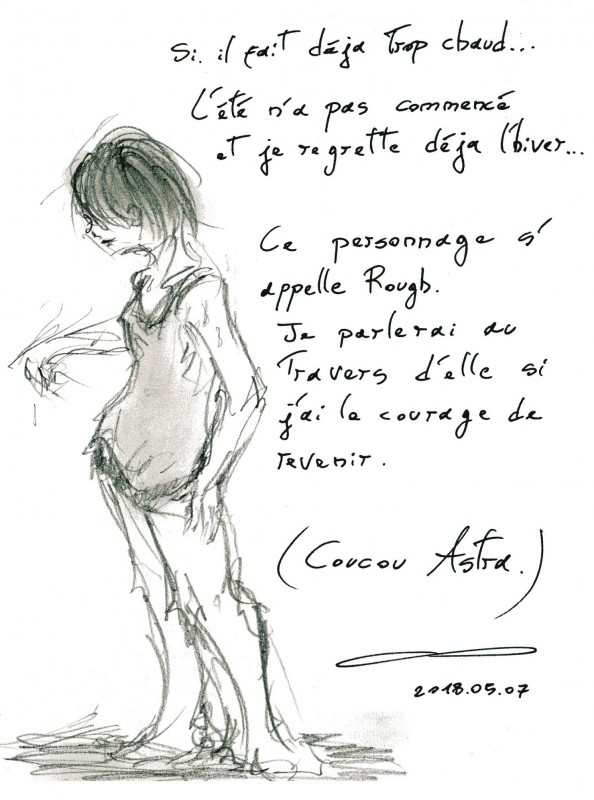 Si. il fait déja trop chaud...
L'été n'a pas commencé
et je regrette déja l'hiver...
Ce personnage s'
appelle Rough.
Je parlerai au
travers d'elle si
j'ai le courage de
revenir.
(Coucou Astra.)
2018.05.07